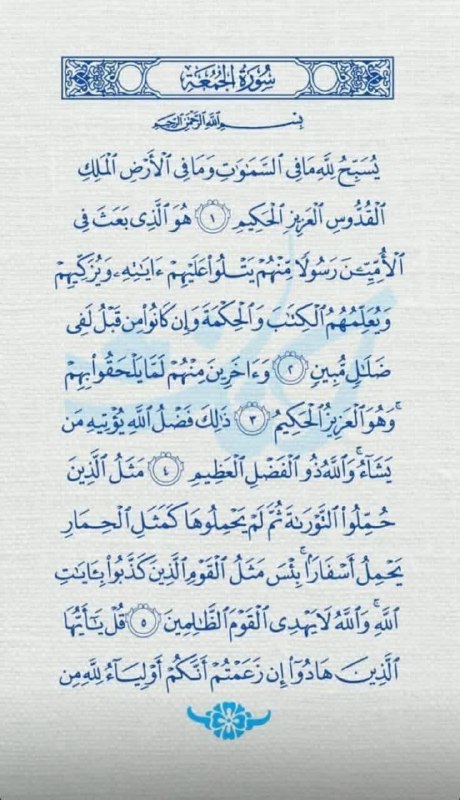 سُورَةُ الجُمُعَةِ
بِسْمِ اللَّهِ الرَّحْمَٰنِ الرَّحِيمِ
يُسَبِّحُ لِلَّهِ مَا فِى السَّمَٰوَٰتِ وَمَا فِى الْأَرْضِ الْمَلِكِ
الْقُدُّوسِ الْعَزِيزِ الْحَكِيمِ ١ هُوَ الَّذِى بَعَثَ فِى
الْأُمِّيِّـنَ رَسُولًا مِّنْهُمْ يَتْلُوا۟ عَلَيْهِمْ ءَايَٰتِهِۦ وَيُزَكِّيهِمْ
وَيُعَلِّمُهُمُ الْكِتَٰبَ وَالْحِكْمَةَ وَإِن كَانُوا۟ مِن قَبْلُ لَفِى
ضَلَٰلٍ مُّبِينٍ ٢ وَءَاخَرِينَ مِنْهُمْ لَمَّا يَلْحَقُوا۟ بِهِمْ
ۚ وَهُوَ الْعَزِيزُ الْحَكِيمُ ٣ ذَٰلِكَ فَضْلُ اللَّهِ يُؤْتِيهِ مَن
يَشَآءُ ۚ وَاللَّهُ ذُو الْفَضْلِ الْعَظِيمِ ٤ مَثَلُ الَّذِينَ
حُمِّلُوا۟ التَّوْرَىٰةَ ثُمَّ لَمْ يَحْمِلُوهَا كَمَثَلِ الْحِمَارِ
يَحْمِلُ أَسْفَارًا ۚ بِئْسَ مَثَلُ الْقَوْمِ الَّذِينَ كَذَّبُوا۟ بِـَٔايَٰتِ
اللَّهِ ۚ وَاللَّهُ لَا يَهْدِى الْقَوْمَ الظَّٰلِمِينَ ٥ قُلْ يَٰٓأَيُّهَا
الَّذِينَ هَادُوٓا۟ إِن زَعَمْتُمْ أَنَّكُمْ أَوْلِيَآءُ لِلَّهِ مِن